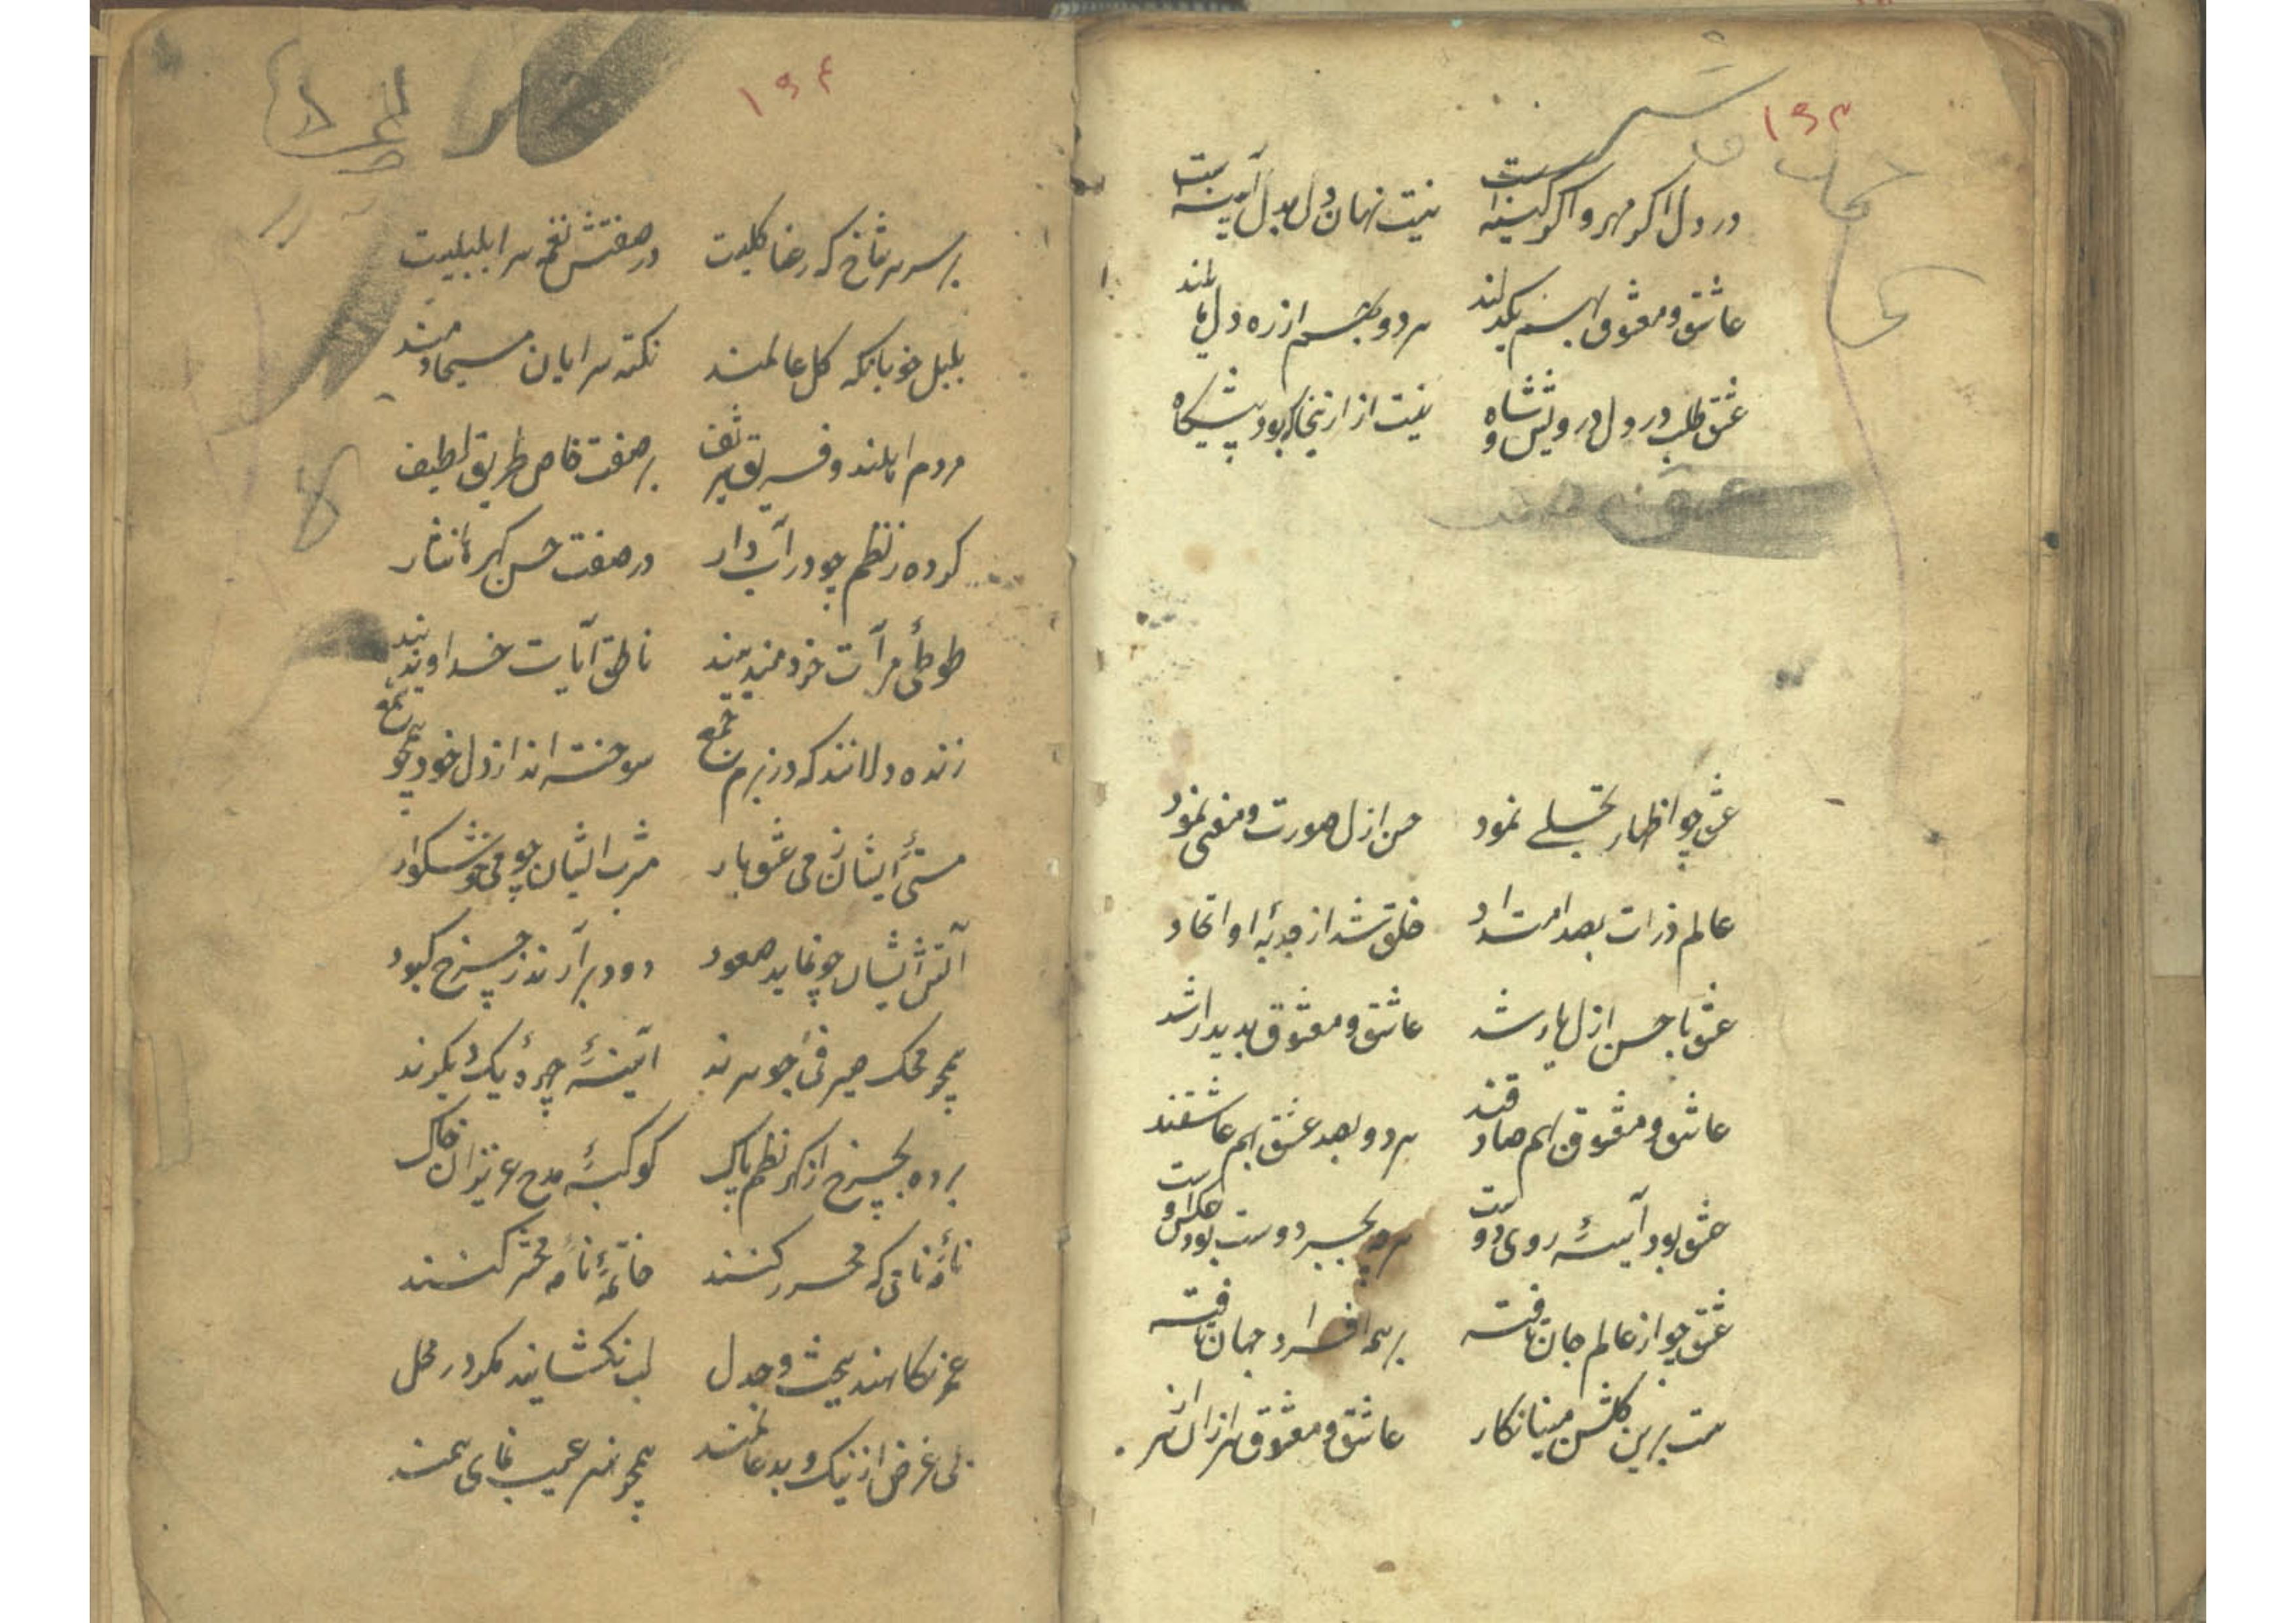 ۱۹۳
در دل اگر مهر و اگر کینه است
نیست نهان دل بدل آیینه است
عاشق و معشوق بهم یکدلند
هر دو بهم از ره دل مایلند
عشق طلب در دل درویش و شاه
نیست از ارنجا که بود پیشگاه
عشق چو اظهار تجلی نمود
حسن ازل صورت و معنی نمود
عالم ذرات بصد امتداد
خلق شد از جذبه او اتحاد
عشق با حسن ازل یار شد
عاشق و معشوق پدیدار شد
عاشق و معشوق بهم صادقند
هر دو بصد عشق بهم عاشقند
عشق بود آینهٔ روی دوست
هرچه بجز دوست بود عکس اوست
عشق چو از عالم جان تافته
بر همه افراد جهان تافته
هست برین گلشن مینا نگار
عاشق و معشوق هزاران هزار
۱۹۴
بر سر هر شاخ که رعنا گلیست
در صفتش نغمه سرا بلبلیست
بلبل خوبانکه گل عالمند
نکته سرایان مسیحا دمند
مردم اهلند و فریق شریف
بر صفت خاص طریق لطیف
کرده ز نظم چو در آب دار
در صفت حسن گهرها نثار
طوطئ مرآت خردمندیند
ناطق آیات خداوندیند
زنده دلانند که در بزم جمع
سوخته اند از دل خود همچو شمع
مستئ ایشان ز می عشق یار
مشرب ایشان چو می خوشگوار
آتش ایشان چو نماید صعود
دود برآرند ز چرخ کبود
همچو محک صیرفئ جوهرند
آیینهٔ چهرهٔ یکدیگرند
برده بچرخ از گهر نظم پاک
کوکبهٔ مدح عزیزان خاک
نامهٔ نامی که محرر کنند
خاتمهٔ نامه محشر کنند
عمر نکاهند ببحث و جدل
لب نگشایند مگر در محل
بی غرض از نیک و بد عالمند
همچو هنر عیب نمای همند